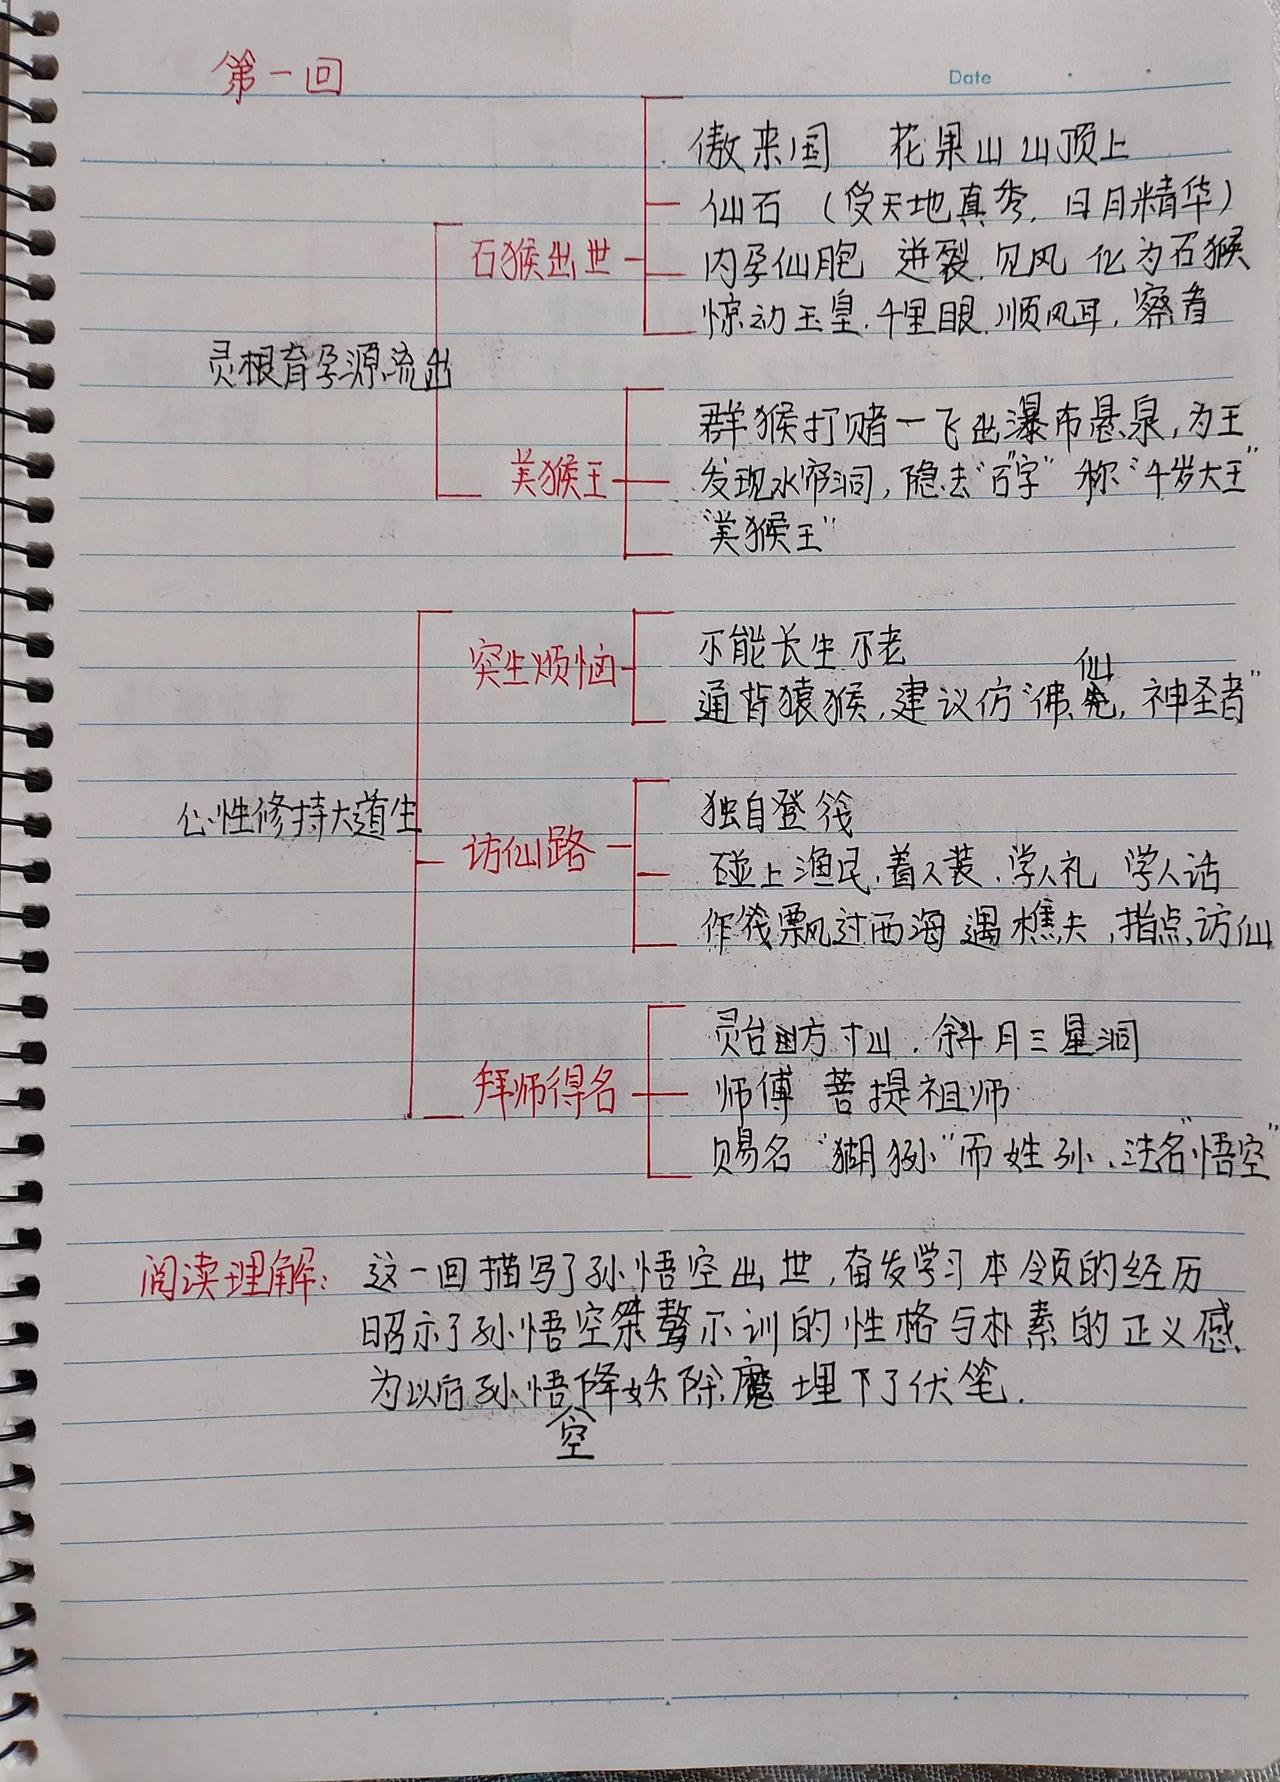 第一回
Date
傲来国 花果山山顶上
仙石（受天地真秀，日月精华）
石猴出世
内孕仙胞 迸裂.见风 化为石猴
惊动玉皇.千里眼.顺风耳，察看
灵根育孕源流出
群猴打赌一飞出瀑布悬泉，为王
美猴王
发现水帘洞，隐去"石字" 称"千岁大王"
"美猴王"
突生烦恼
不能长生不老
仙
通背猿猴，建议仿"佛、，神圣者"
心性修持大道生
独自登筏
访仙路
碰上渔民.着人装.学人礼 学人话
作筏飘过西海 遇樵夫，指点访仙
灵台方寸山．斜月三星洞
拜师得名
师傅 菩提祖师
赐名"猢狲"而姓孙．法名"悟空"
阅读理解：这一回描写了孙悟空出世，奋发学习本领的经历
昭示了孙悟空桀骜不训的性格与朴素的正义感、
为以后孙悟降妖除魔埋下了伏笔．
空